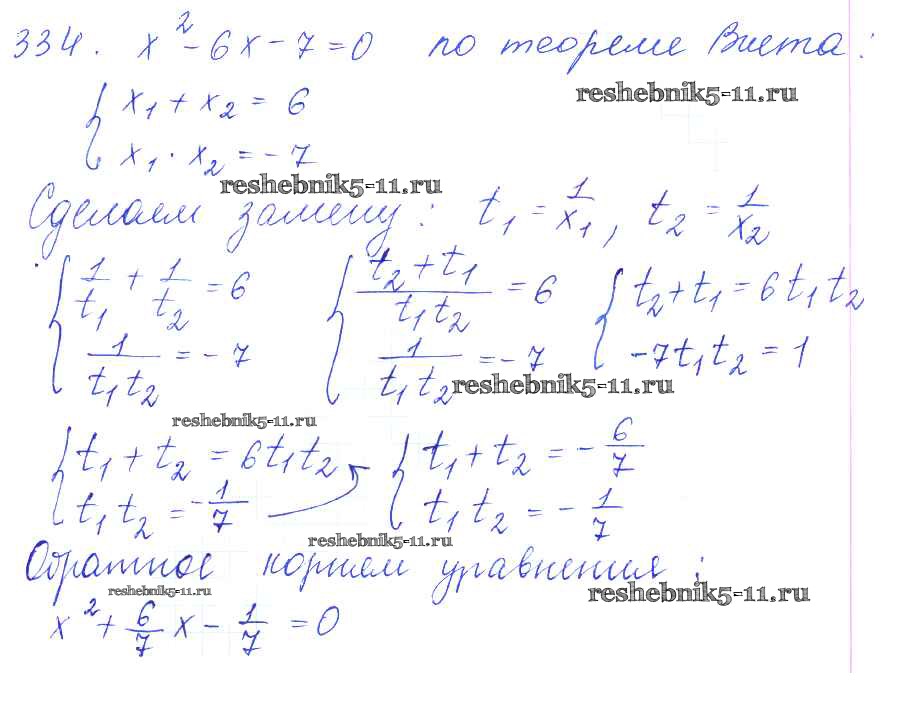 334. x² - 6x - 7 = 0 по теореме Виета:
x₁ + x₂ = 6
reshebnik5-11.ru
x₁ · x₂ = -7
reshebnik5-11.ru
Сделаем замену: t₁ = 1/x₁, t₂ = 1/x₂
{ 1/t₁ + 1/t₂ = 6 { (t₂ + t₁)/(t₁t₂) = 6 { t₂ + t₁ = 6t₁t₂
1/(t₁t₂) = -7 1/(t₁t₂) = -7 -7t₁t₂ = 1
reshebnik5-11.ru
reshebnik5-11.ru
{ t₁ + t₂ = 6t₁t₂ { t₁ + t₂ = -6/7
t₁t₂ = -1/7 t₁t₂ = -1/7
reshebnik5-11.ru
Обратное корням уравнения:
reshebnik5-11.ru
reshebnik5-11.ru
x² + 6/7 x - 1/7 = 0